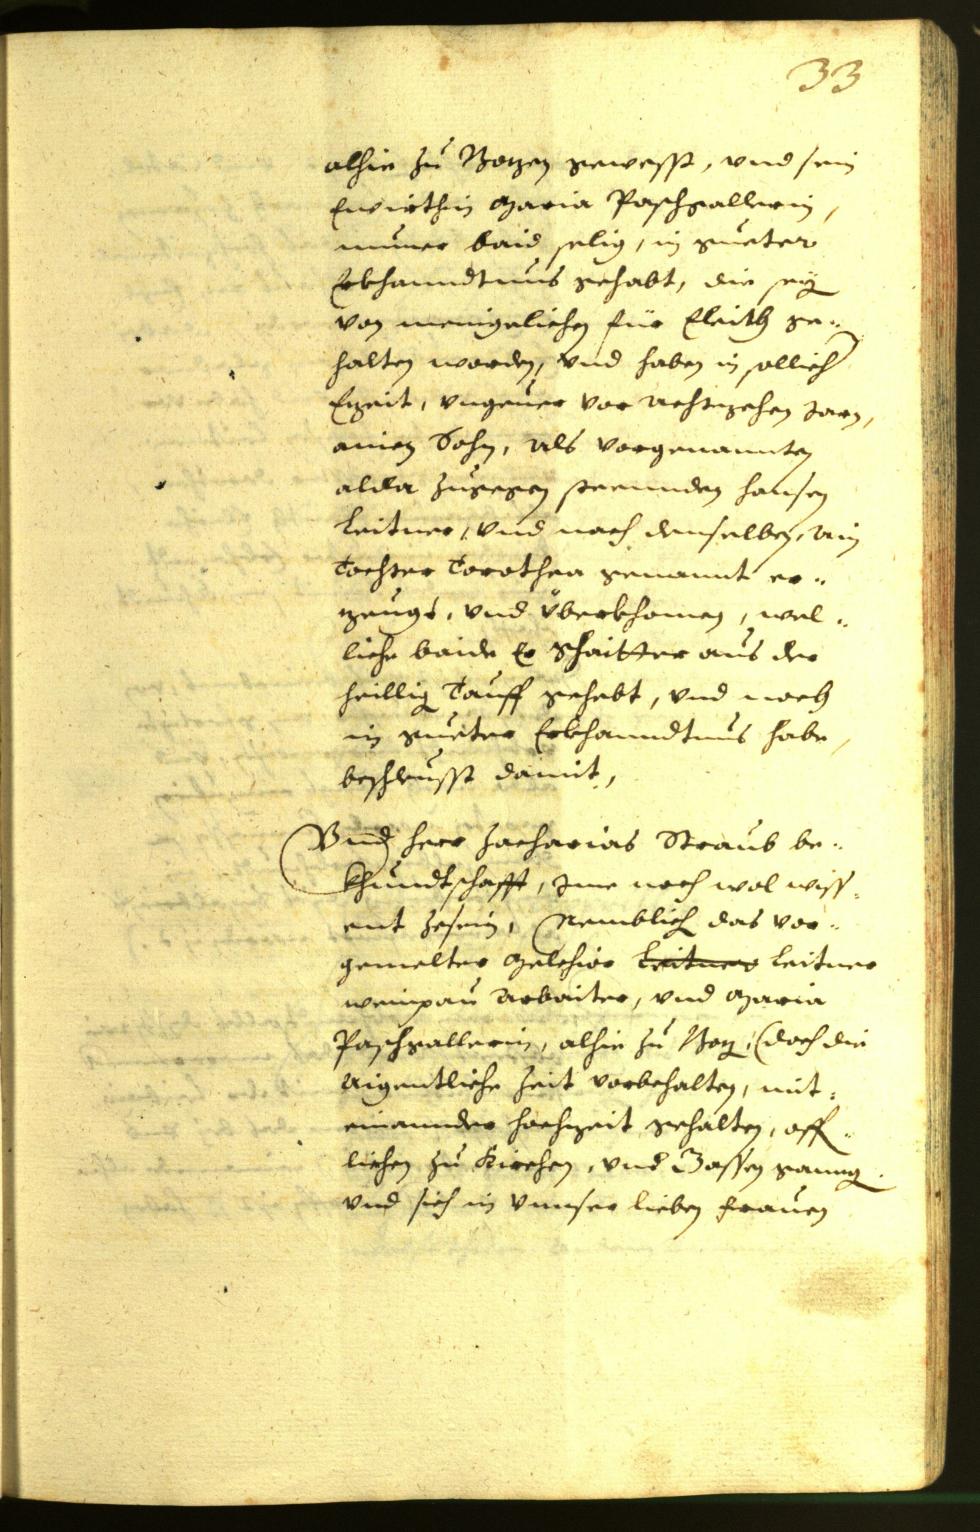 33
alhie zu Botzen gewesst, vnd sein
Ewirthin Maria Paschgallerin,
numer baid selig, in gueter
Erkhanndtnus gehabt, die sey
von menigelichen für Eleith ge„
halten worden, vnd haben in sollich
Ezeit, vngeuer vor achtzehen Jarn,
ainen Sohn, als vorgenannten
alda zugegen steennden Hansen
Leitner, vnd nach demselben, ain
Tochter Torothea genannt er„
zeugt, vnd überkhomen, wel„
liche baide Er  aus der
heillig Tauff gehebt, vnd noch
in gueter Erkhanndtnus habe,
beschleusst damit,
Vnnd herr Zacharias Straub be„
khundtschafft, Ime noch wol wiss„
ent zesein, Nemblich das vor„
gemelter Melchior Leitner Leitner
weinpau Arbaiter, vnd Maria
Paschgallerin, alhie zu Botz, (doch die
Aigentliche Zeit vorbehalten, mit„
einannder hochzeit gehalten, off„
lichen zu Kirchen, vnd Gassen ganng
vnd sich in vnnser lieben Frauen